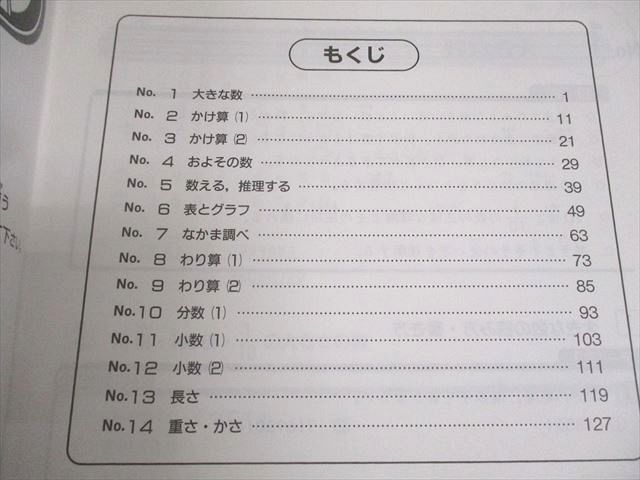 もくじ
No. 1 大きな数 1
No. 2 かけ算 (1) 11
No. 3 かけ算 (2) 21
No. 4 およその数 29
No. 5 数える, 推理する 39
No. 6 表とグラフ 49
No. 7 なかま調べ 63
No. 8 わり算 (1) 73
No. 9 わり算 (2) 85
No.10 分数 (1) 93
No.11 小数 (1) 103
No.12 小数 (2) 111
No.13 長さ 119
No.14 重さ・かさ 127
下さい